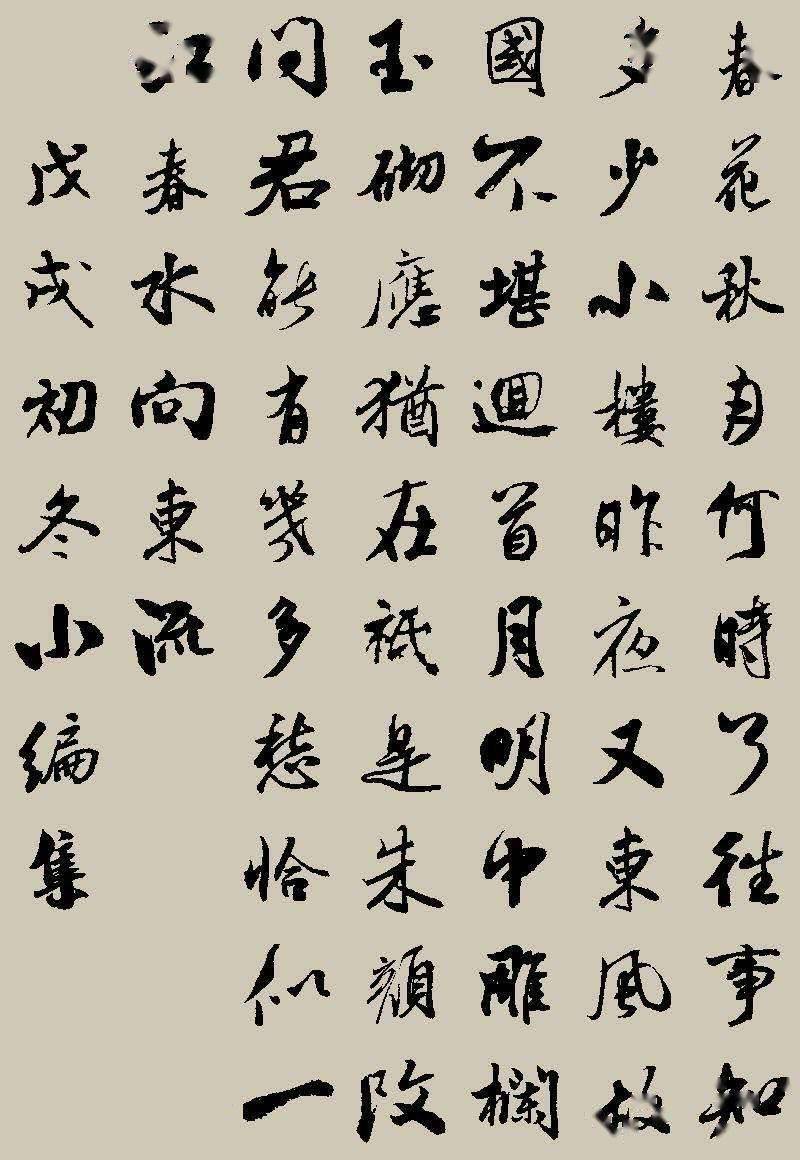 春花秋月何時了往事知
多少小樓昨夜又東風故
國不堪迴首月明中雕欄
玉砌應猶在祗是朱顔改
问君能有幾多愁恰似一
江春水向東流
戊戌初冬小編集